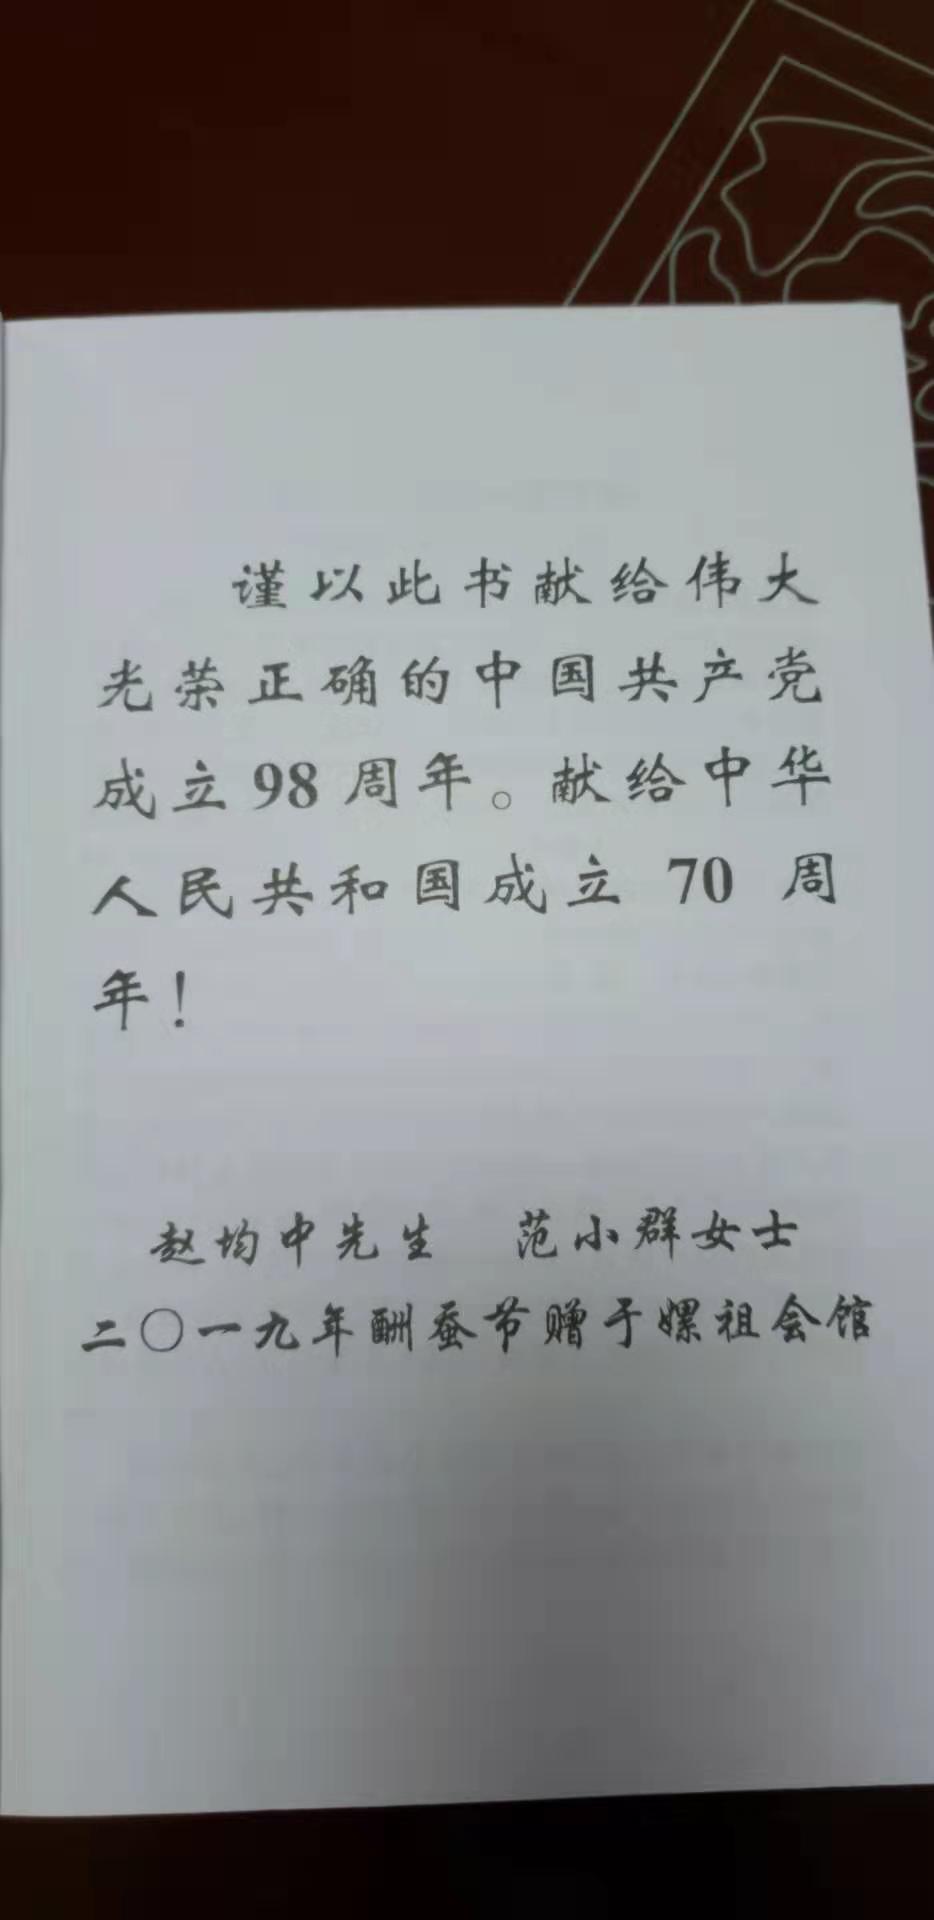 谨以此书献给伟大
光荣正确的中国共产党
成立98周年。献给中华
人民共和国成立 70 周
年！
赵均中先生　范小群女士
二〇一九年酬蚕节赠于嫘祖会馆